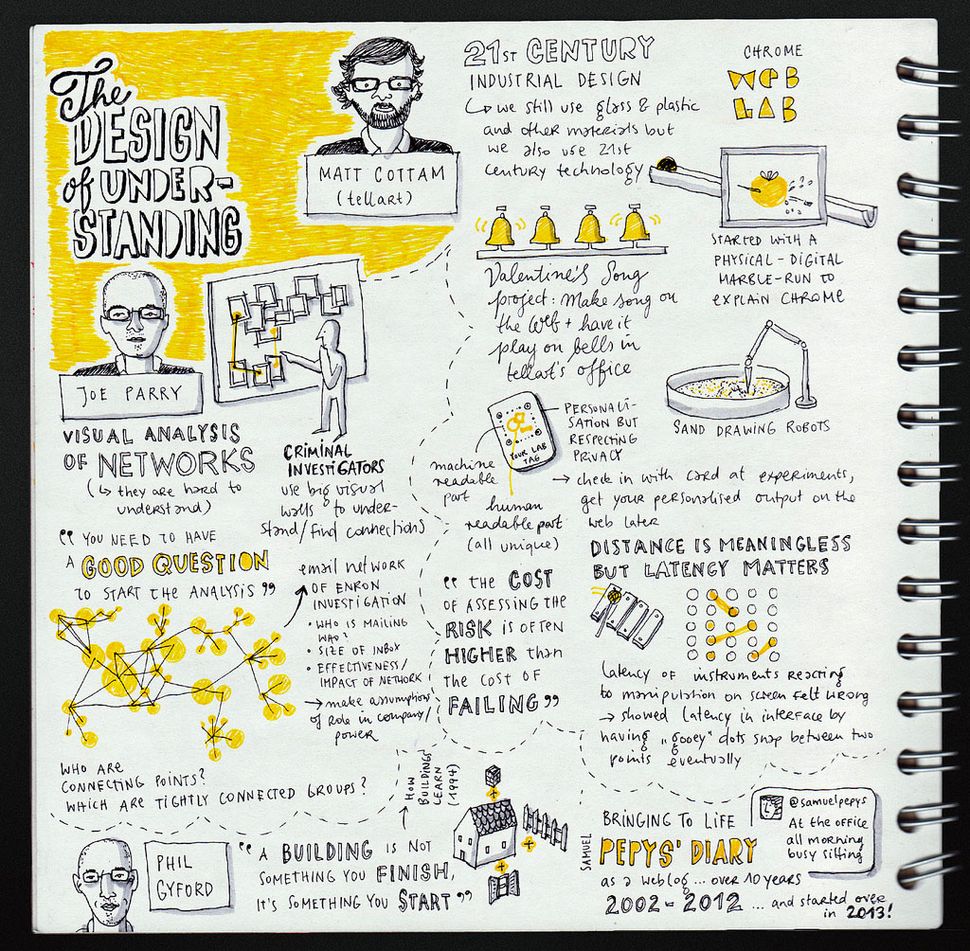 The
DESIGN
of UNDER-
STANDING
MATT COTTAM
(tellart)
21ST CENTURY
INDUSTRIAL DESIGN
↳ we still use glass & plastic
and other materials but
we also use 21st
century technology
CHROME
WEB
LAB
STARTED WITH A
PHYSICAL-DIGITAL
MARBLE-RUN TO
EXPLAIN CHROME
Valentine's Song
project: Make song on
the web + have it
play on bells in
tellart's office
SAND DRAWING ROBOTS
YOUR LAB
TAG
PERSONALI-
SATION BUT
RESPECTING
PRIVACY
machine
readable
part
human
readable part
(all unique)
→ check in with card at experiments,
get your personalised output on the
web later
"THE COST
OF ASSESSING THE
RISK IS OFTEN
HIGHER than
the COST OF
FAILING"
DISTANCE IS MEANINGLESS
BUT LATENCY MATTERS
latency of instruments reacting
to manipulation on screen felt wrong
→ showed latency in interface by
having „gooey" dots snap between two
points eventually
JOE PARRY
VISUAL ANALYSIS
OF NETWORKS
(↳ they are hard to
understand)
CRIMINAL
INVESTIGATORS
use big visual
walls to under-
stand/find connections
"YOU NEED TO HAVE
A GOOD QUESTION
TO START THE ANALYSIS"
email network
OF ENRON
INVESTIGATION
• WHO IS MAILING
WHO?
• SIZE OF INBOX
• EFFECTIVENESS/
IMPACT OF NETWORK
→ make assumptions
of role in company/
power
WHO ARE
CONNECTING POINTS?
WHICH ARE TIGHTLY CONNECTED GROUPS?
PHIL
GYFORD
"A BUILDING IS NOT
SOMETHING YOU FINISH,
IT'S SOMETHING YOU START"
HOW
BUILDINGS
LEARN
(1994)
BRINGING TO LIFE
SAMUEL
PEPYS' DIARY
as a weblog ... over 10 years
2002 - 2012 ... and started over
in 2013!
@samuelpepys
At the office
all morning
busy sitting